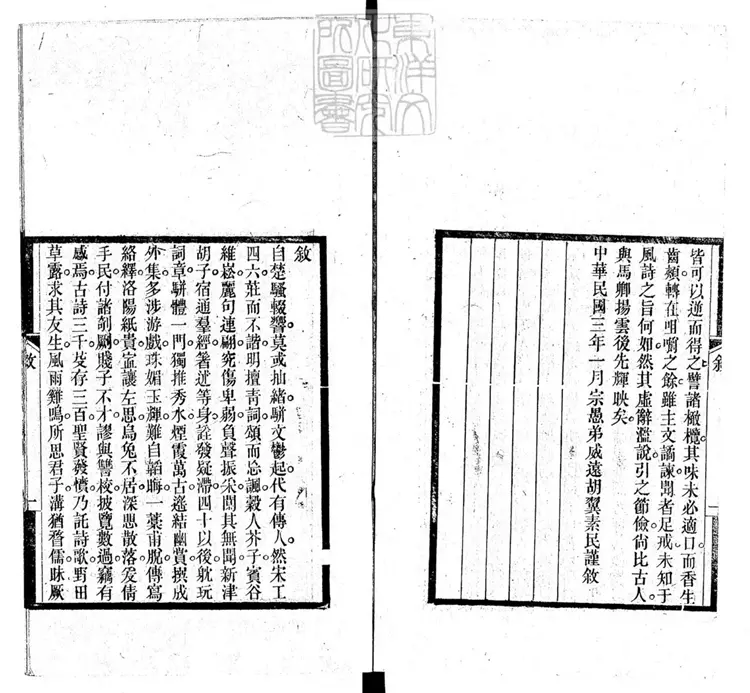 東洋文
化研究
所圖書
皆可以逆而得之譬諸橄欖其味未必適口而香生
齒頰轉在咀嚼之餘雖主文譎諫聞者足戒未知于
風詩之旨何如然其虛辭濫說引之節儉尚比古人
與馬卿揚雲後先輝映矣
中華民國三年一月宗愚弟威遠胡翼素民謹敘
敘
敘
自楚騷輟響莫或抽緒駢文鬱起代有傳人然宋工
四六莊而不諧明擅青詞頌而忘諷穀人芥子賓谷
維崧麗句連翩究傷卑弱負聲振采閴其無聞新津
胡子宿通羣經著述等身詮發疑滯四十以後躭玩
詞章駢體一門獨推秀水煙霞萬古遙結幽賞撰成
外集多涉游戲珠媚玉輝難自韜晦一藁甫脫傳寫
絡繹洛陽紙貴寍讓左思烏兔不居深思散落爰倩
手民付諸剞劂賤子不才謬與讐校披覽數過竊有
感焉古詩三千芟存三百聖賢發憤乃託詩歌野田
草露求其友生風雨雞鳴所思君子溝猶瞀儒昧厥
敘
一